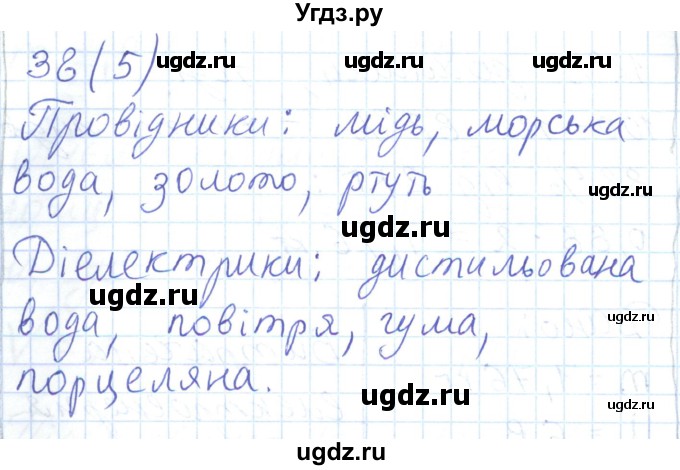 Угдз.ру
Зв(5) ugdz.ru ugdz.ru
Провідники: мідь, морська
вода, золото, ртуть ugdz.ru
ugdz.ru
Діелектрики; дистильована
ugdz.ru
вода, повітря, гума, ugdz.ru
порцеляна. ugdz.ru ugdz.ru
ugdz.ru